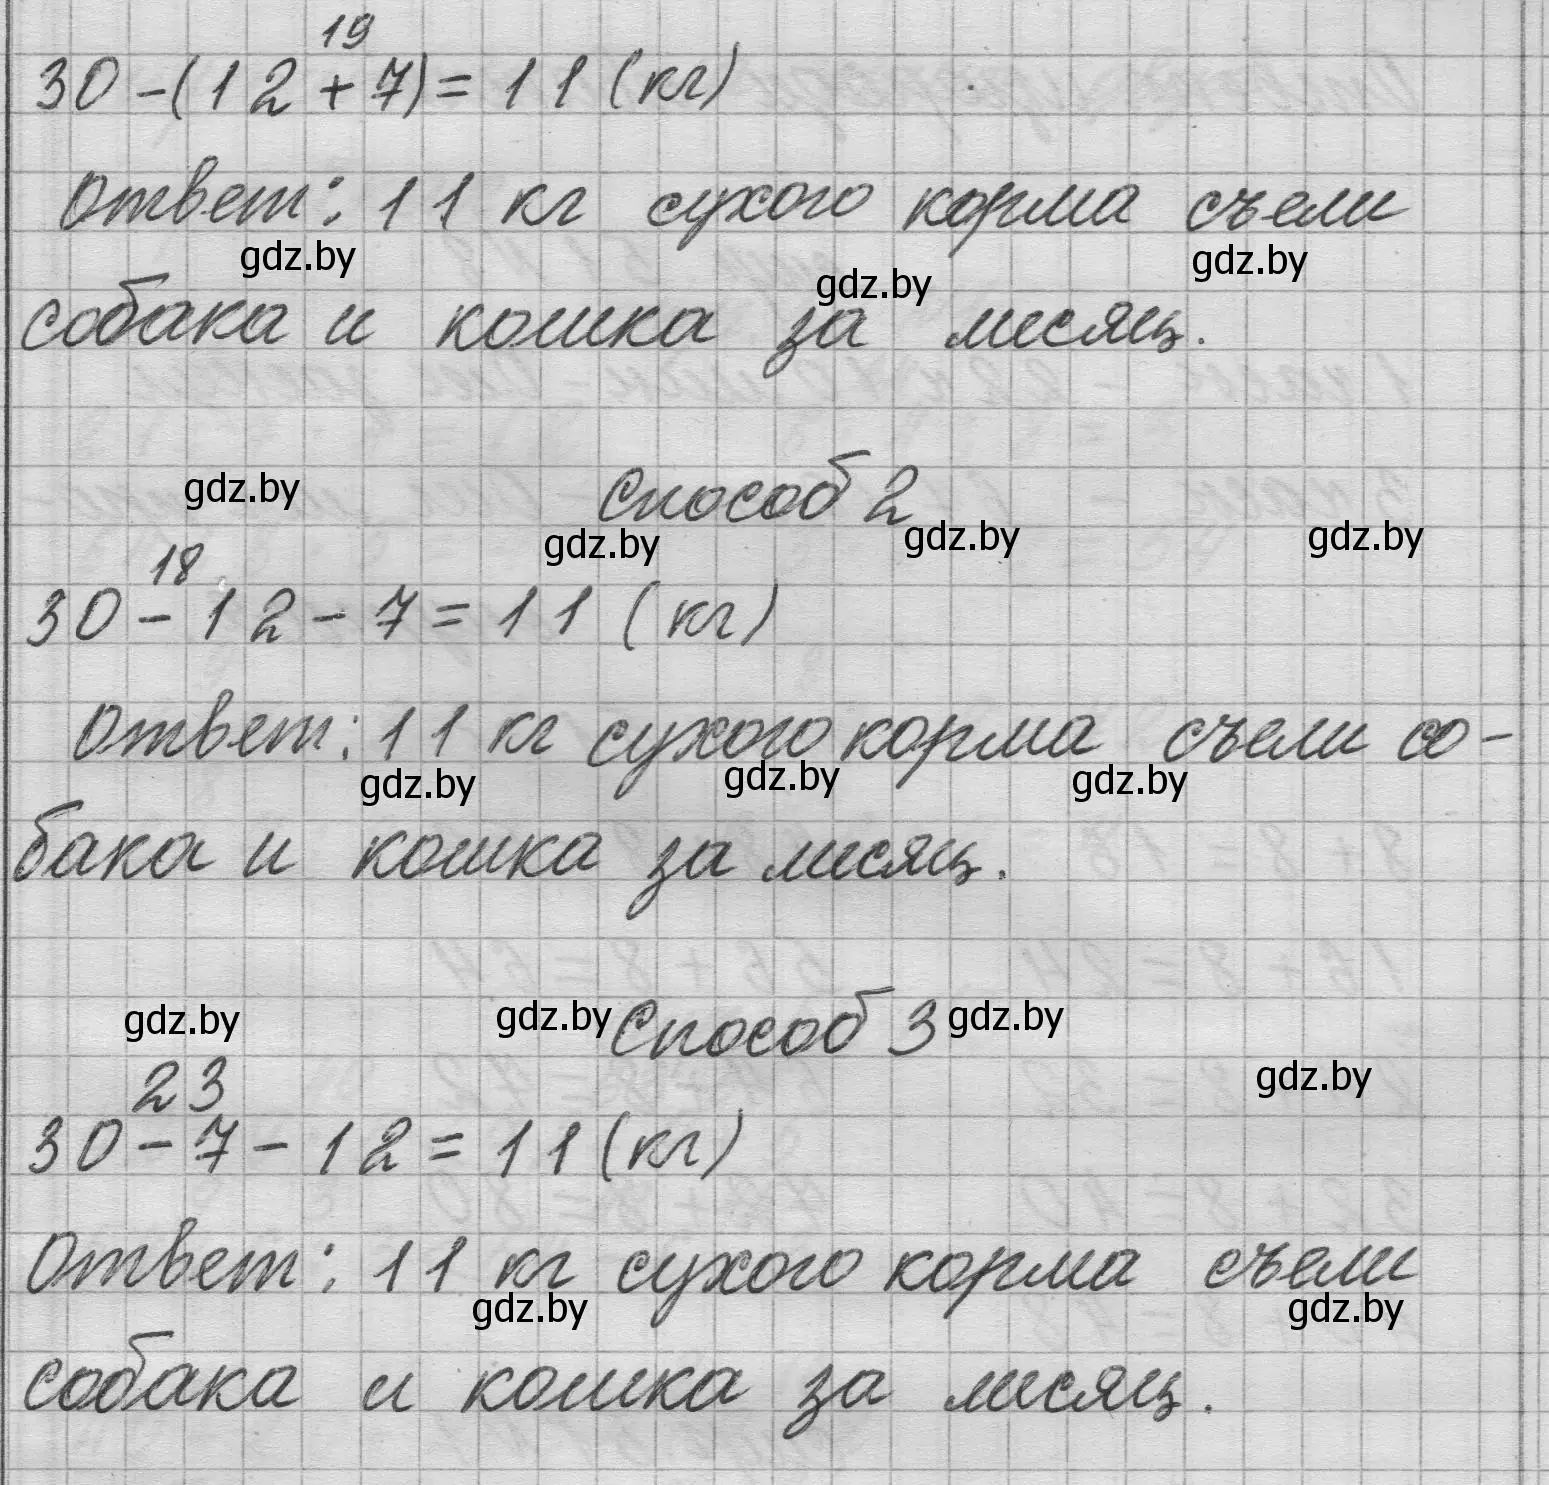 19
30-(12+7)=11 (кг)
Ответ: 11 кг сухого корма съели
gdz.by gdz.by gdz.by
собака и кошка за месяц.
gdz.by Способ 2
gdz.by gdz.by gdz.by
18
30-12-7=11 (кг)
Ответ: 11 кг сухого корма съели со-
gdz.by gdz.by gdz.by
бака и кошка за месяц.
gdz.by gdz.by Способ 3 gdz.by
gdz.by
23
30-7-12=11 (кг)
Ответ: 11 кг сухого корма съели
gdz.by gdz.by
собака и кошка за месяц.